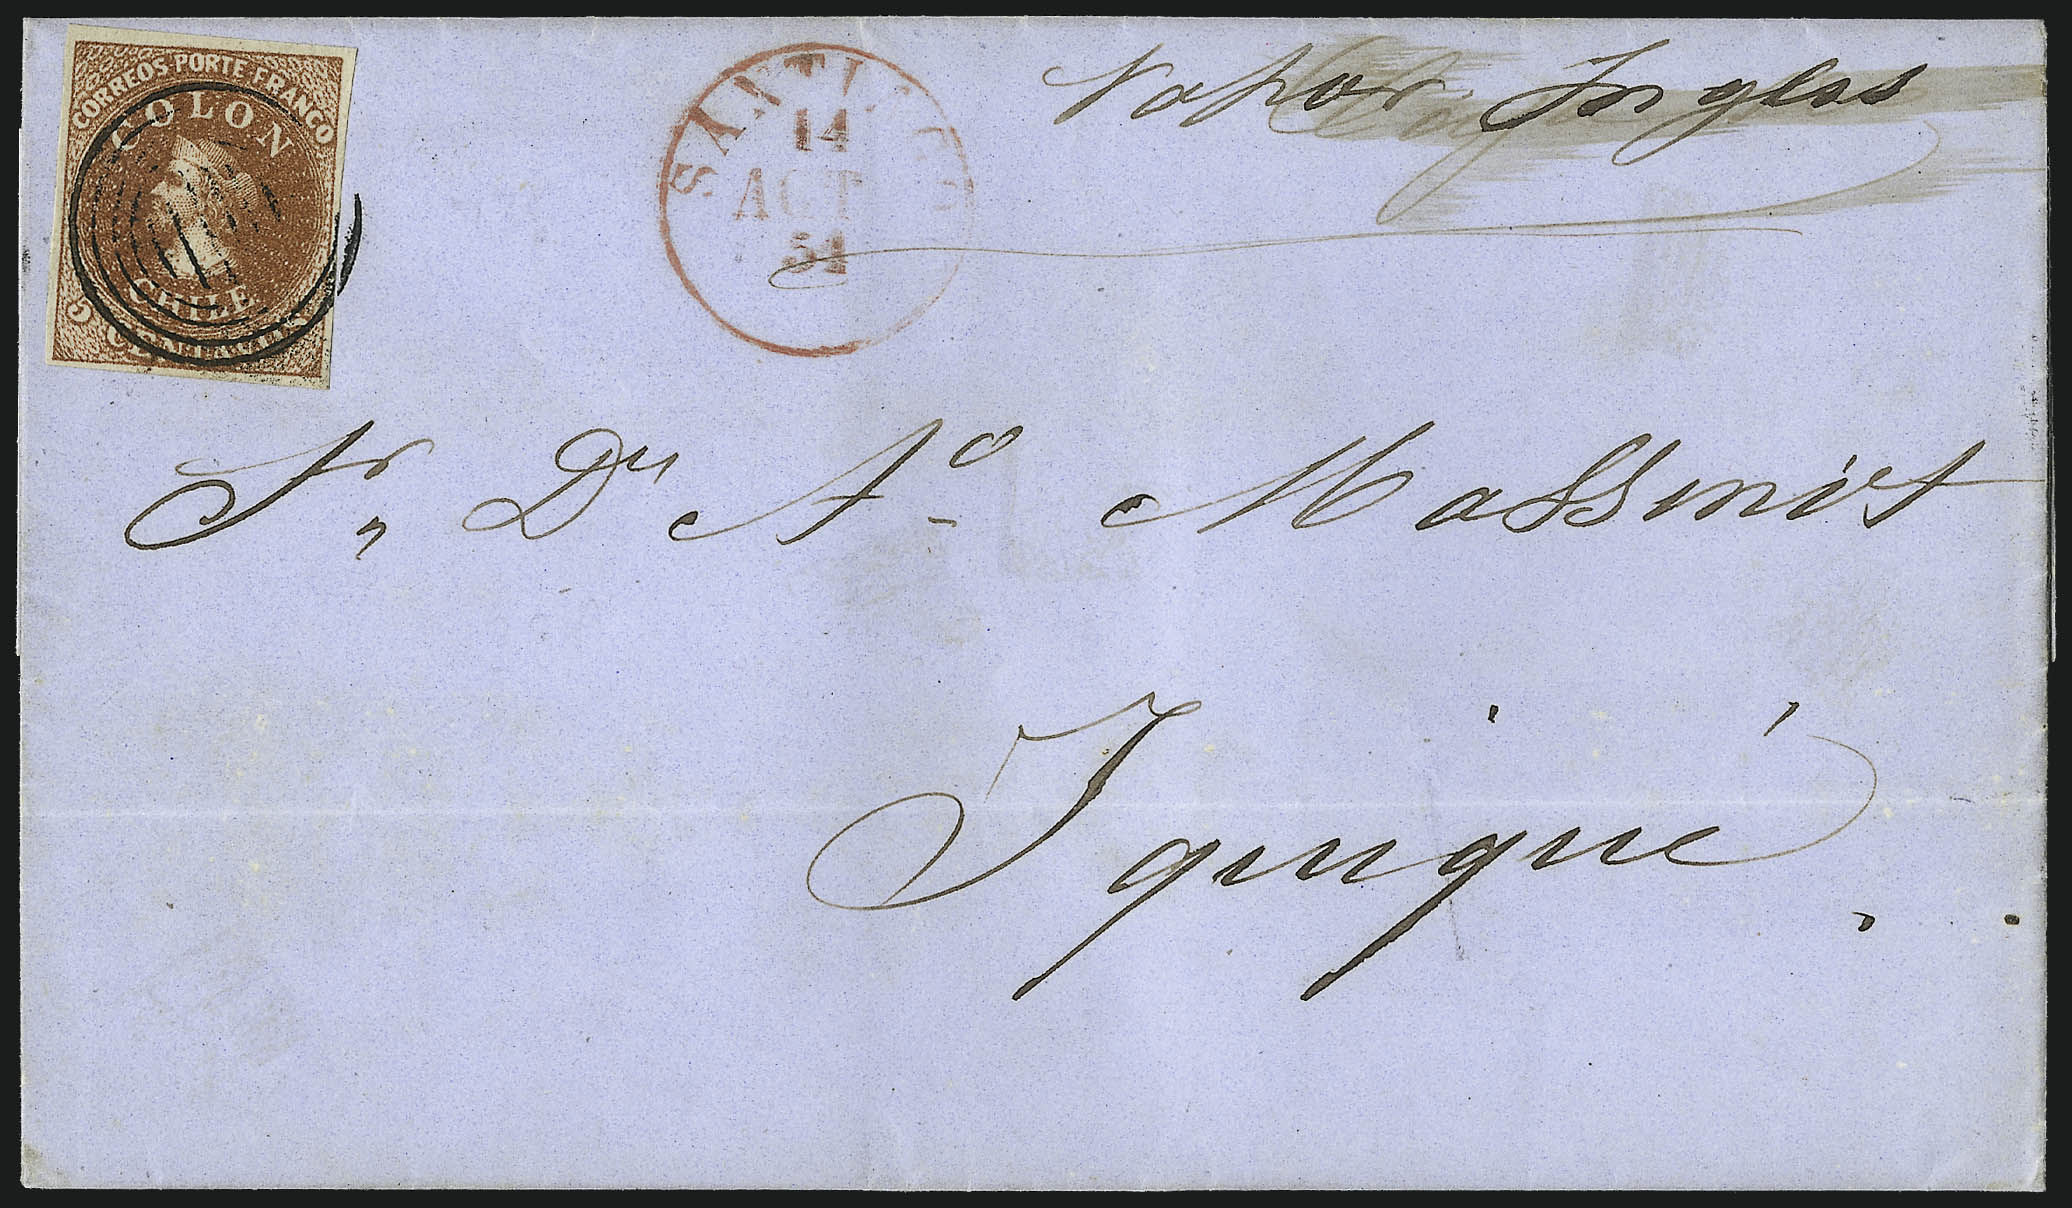 CORREOS PORTE FRANCO
COLON
CHILE
5 CENTAVOS
SANTIAGO
14
AGT
54
Vapor Ingles
Sr, Dn Ao Massmist
Iquiqué.